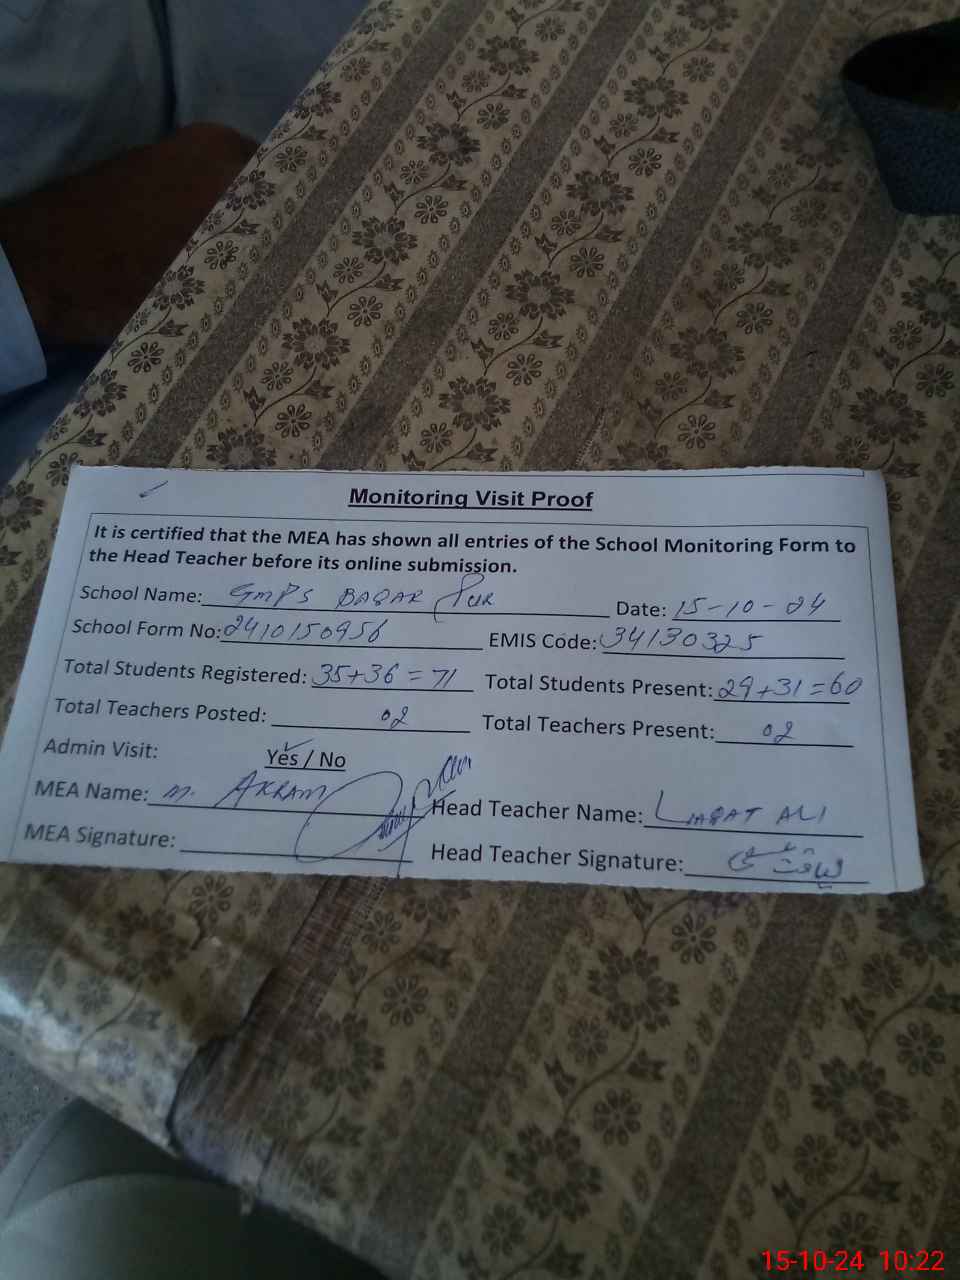 Monitoring Visit Proof
It is certified that the MEA has shown all entries of the School Monitoring Form to
the Head Teacher before its online submission.
School Name: GMPS BAQAR PUR Date: 15-10-24
School Form No: 2410150956 EMIS Code: 34130325
Total Students Registered: 35+36 = 71 Total Students Present: 29+31=60
Total Teachers Posted: 02 Total Teachers Present: 02
Admin Visit: Yes / No
MEA Name: M. AKRAM Head Teacher Name: LIAQAT ALI
MEA Signature: Head Teacher Signature: لیاقت علی
15-10-24 10:22